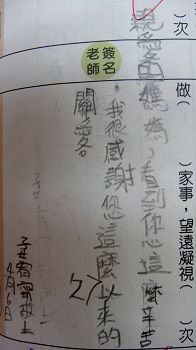 ）次
做（　）家事，望遠凝視（　）次
親愛的媽媽，看到您這麼辛苦
簽名
老師
，我很感謝您這麼以來的
關愛
敬上
4月6日